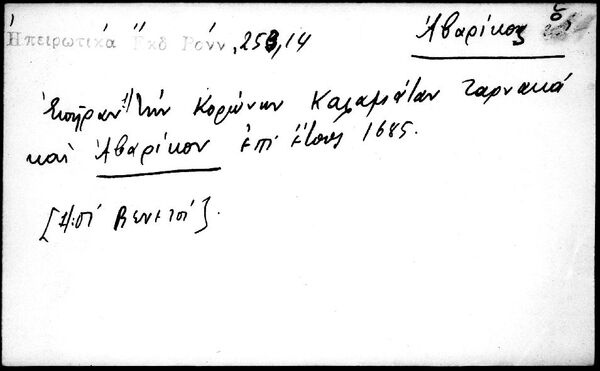 Ἠπειρωτικά Ἔκδ Βόνν, 253,14
Ἀβαρίκος ὁ
Ἐπῆραν τὴν Κορώνην Καλαμάταν Ζαρνακά
καὶ Ἀβαρίκον ἐπὶ ἔτους 1685.
[Ἡ· οἱ Βενετοί].